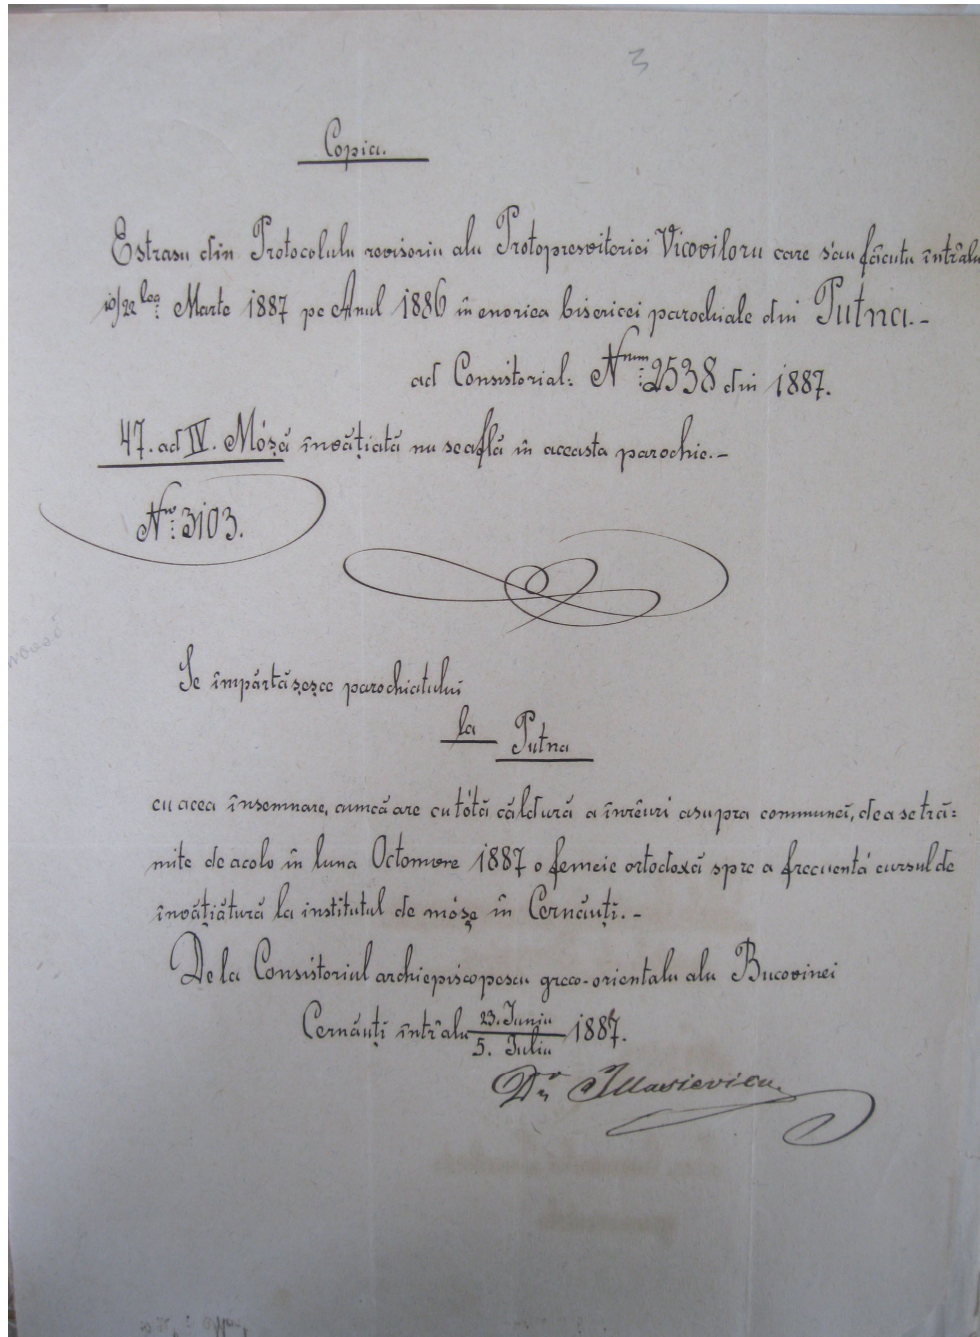 3
Copia.
Estrasu din Protocolulu revisoriu alu Protopresviteriei Vicoviloru care s'au făcutu într'alu
10/22 lea Marte 1887 pe Anul 1886 în enoriea bisericei parochiale din Putna.-
ad Consistorial: Nrum 2538 din 1887.
47. ad IV. Móșă învățiată nu se află în aceasta parochie.-
Nro 3103.
Se împărtășesce parochiatului
la Putna
cu acea însemnare, cumcă are cu tótă căldură a înrêuri asupra communei, de a se tră=
mite de acolo în luna Octomvre 1887 o femeie ortodoxă spre a frecuentá cursul de
învățiătură la institutul de móșe în Cernăuți.-
De la Consistoriul archiepiscopescu greco-orientalu alu Bucovinei
Cernăuți într'alu 23. Juniu / 5. Juliu 1887.
Dr